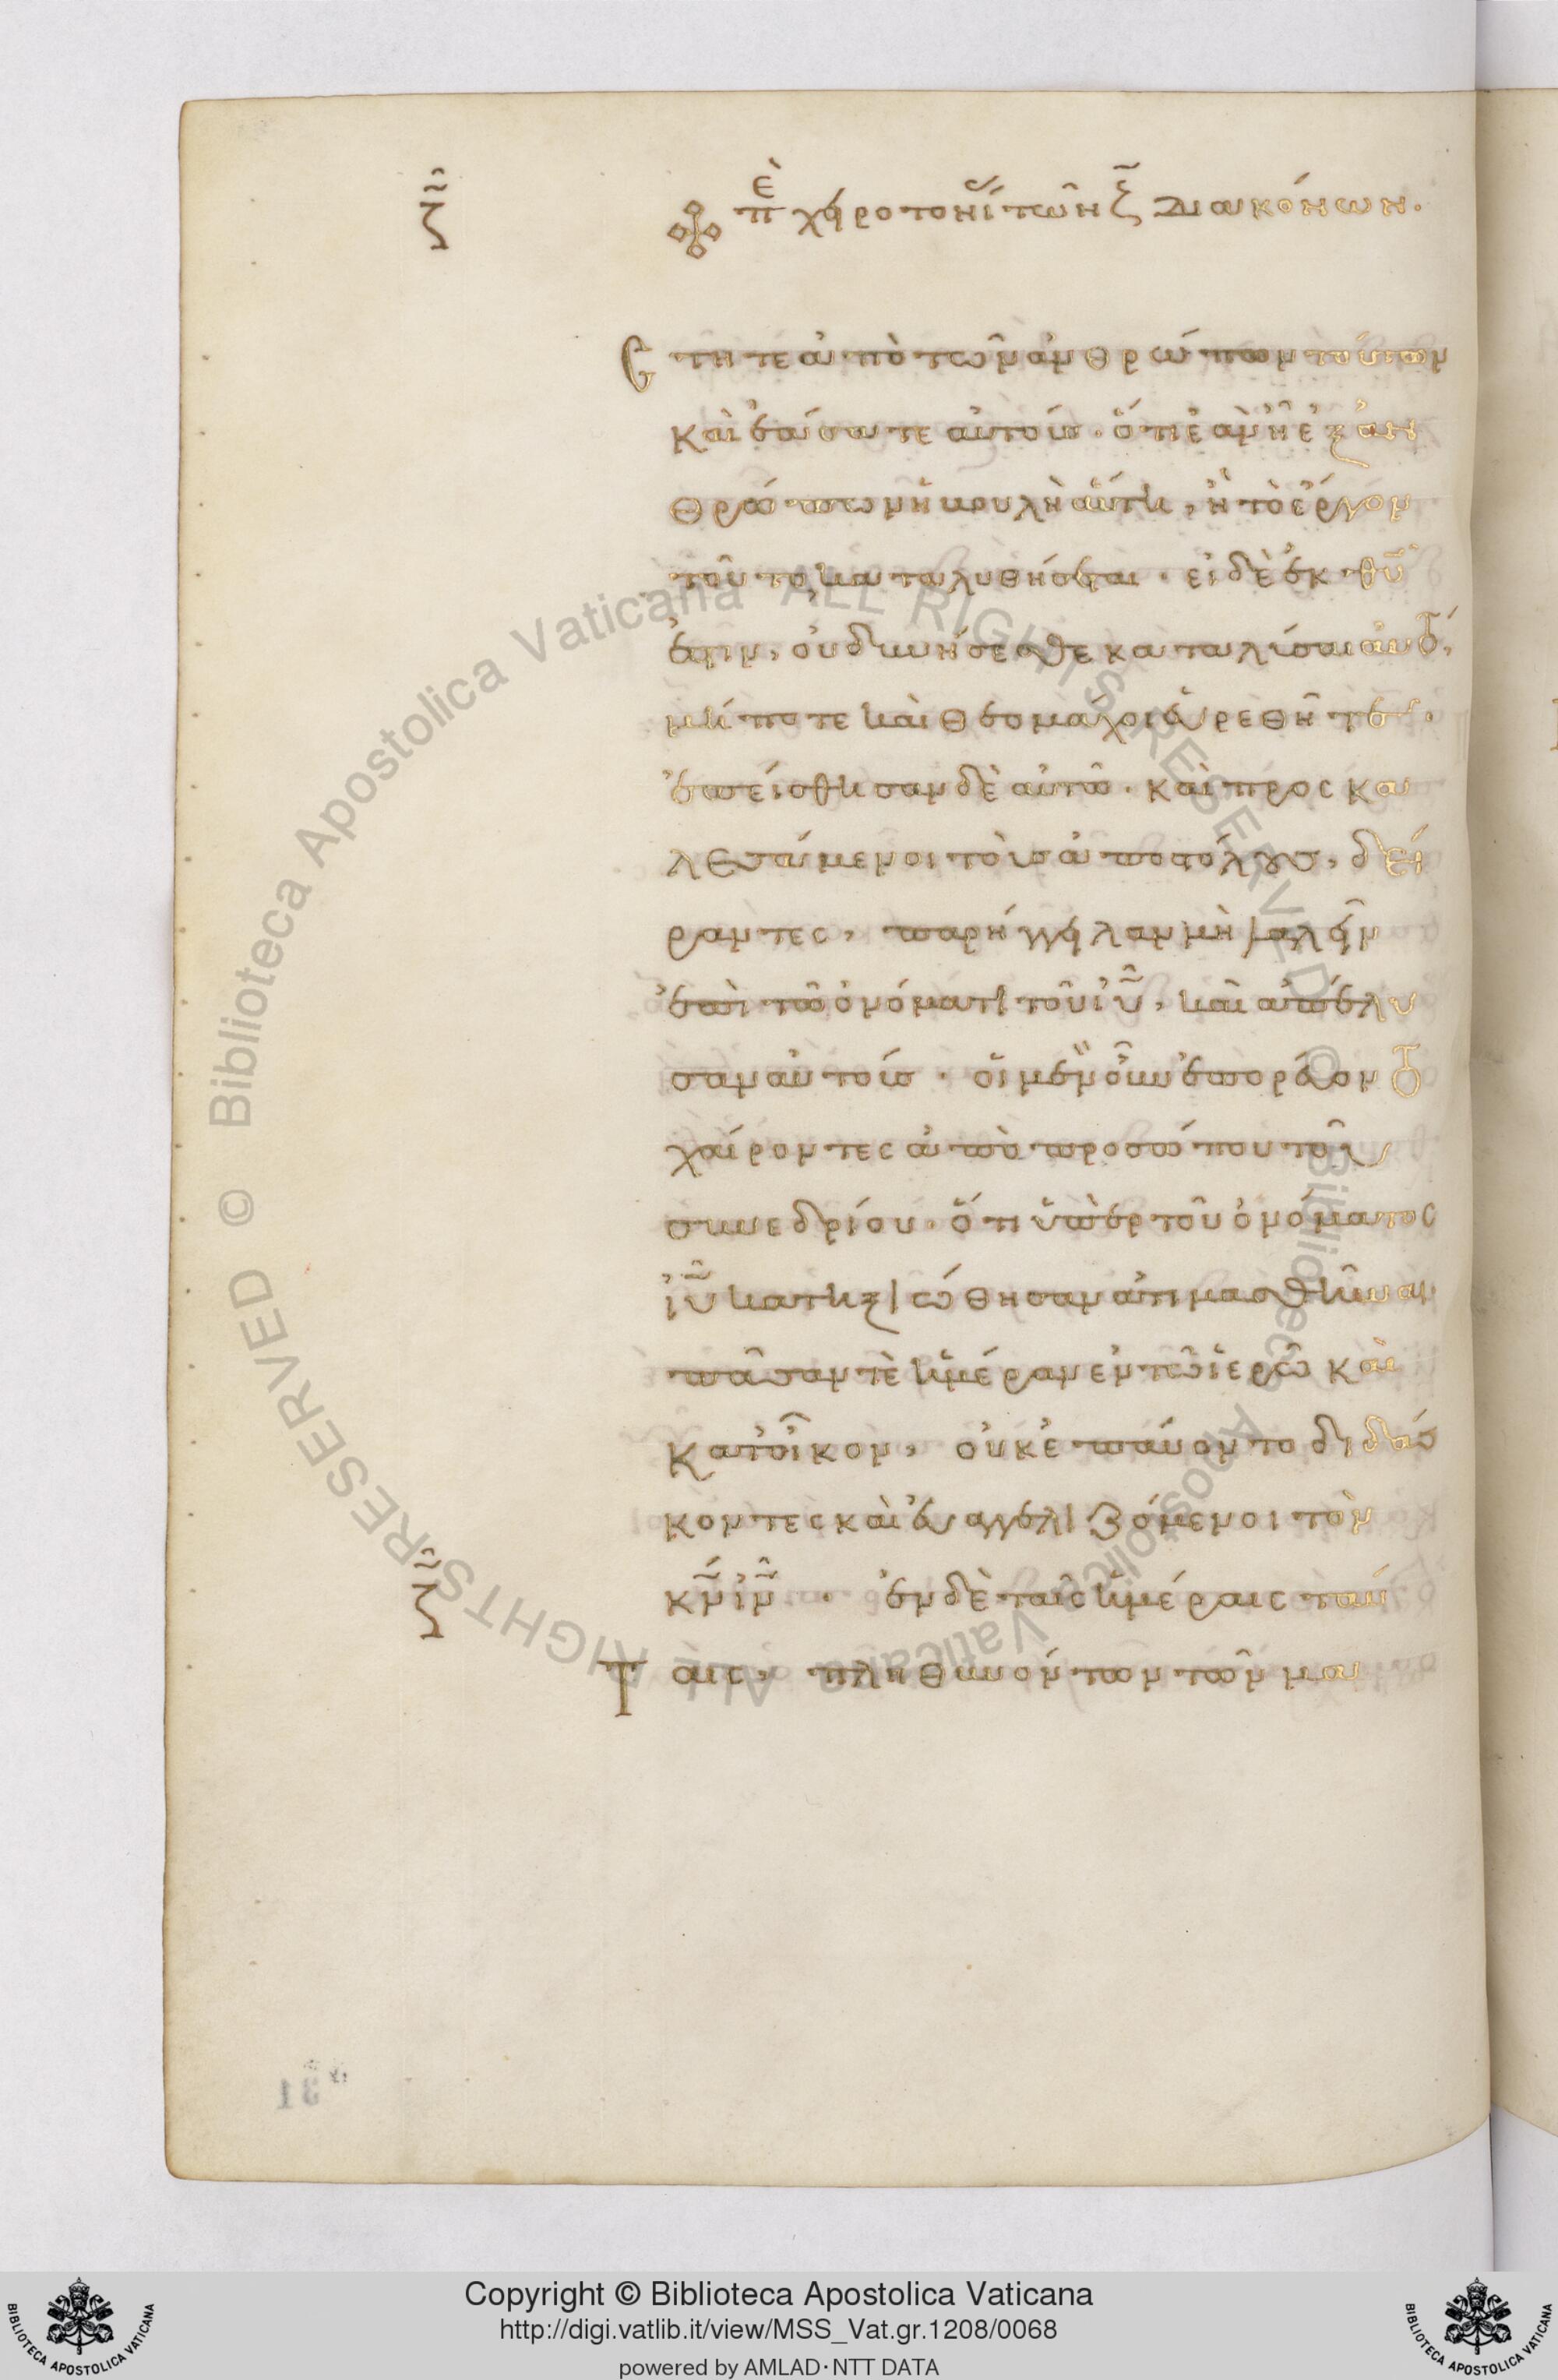 ζ̃
ἐπ χειροτονεί τῶν ζ̃ διακόνων.
Cτητε ἀπὸ τῶν ἀνθρώπων τούτων
καὶ ἐάσατε αὐτούς. ὅτι ἐὰν ἦ ἐξ ἀν
θρώπων ἡ βουλὴ αὕτη, ἢ τὸ ἔργον
τοῦτο, καταλυθήσεται. εἰ δὲ ἐκ θῦ
ἐστιν, οὐ δυνήσεσθε καταλύσαι αὐτό,
μήποτε καὶ θεομάχοι εὑρεθῆτε.
ἐπείσθησαν δὲ αὐτῶ. καὶ προσκα
λεσάμενοι τοὺς ἀποστόλους, δεί
ραντες, παρήγγειλαν μὴ λαλεῖν
ἐπὶ τῶ ὀνόματι τοῦ ἰῦ, καὶ ἀπέλυ
σαν αὐτούς. οἱ μὲν οὖν ἐπορεύοντο
χαίροντες ἀπὸ προσώπου τοῦ
συνεδρίου. ὅτι ὑπὲρ τοῦ ὀνόματος
ἰῦ κατηξιώθησαν ἀτιμασθῆναι
πᾶσαν τὲ ἡμέραν ἐν τῶ ἱερῶ καὶ
κατοῖκον, οὐκ ἐπαύοντο διδάσ
κοντες καὶ εὐαγγελιζόμενοι τὸν
κν̃ ἰν̃. ἐν δὲ ταῖς ἡμέραις ταύ
ζ̃
Ταις, πληθυνόντων τῶν μα
31
Copyright © Biblioteca Apostolica Vaticana
http://digi.vatlib.it/view/MSS_Vat.gr.1208/0068
powered by AMLAD·NTT DATA
BIBLIOTECA APOSTOLICA VATICANA
BIBLIOTECA APOSTOLICA VATICANA
© Biblioteca Apostolica Vaticana ALL RIGHTS RESERVED © Biblioteca Apostolica Vaticana ALL RIGHTS RESERVED